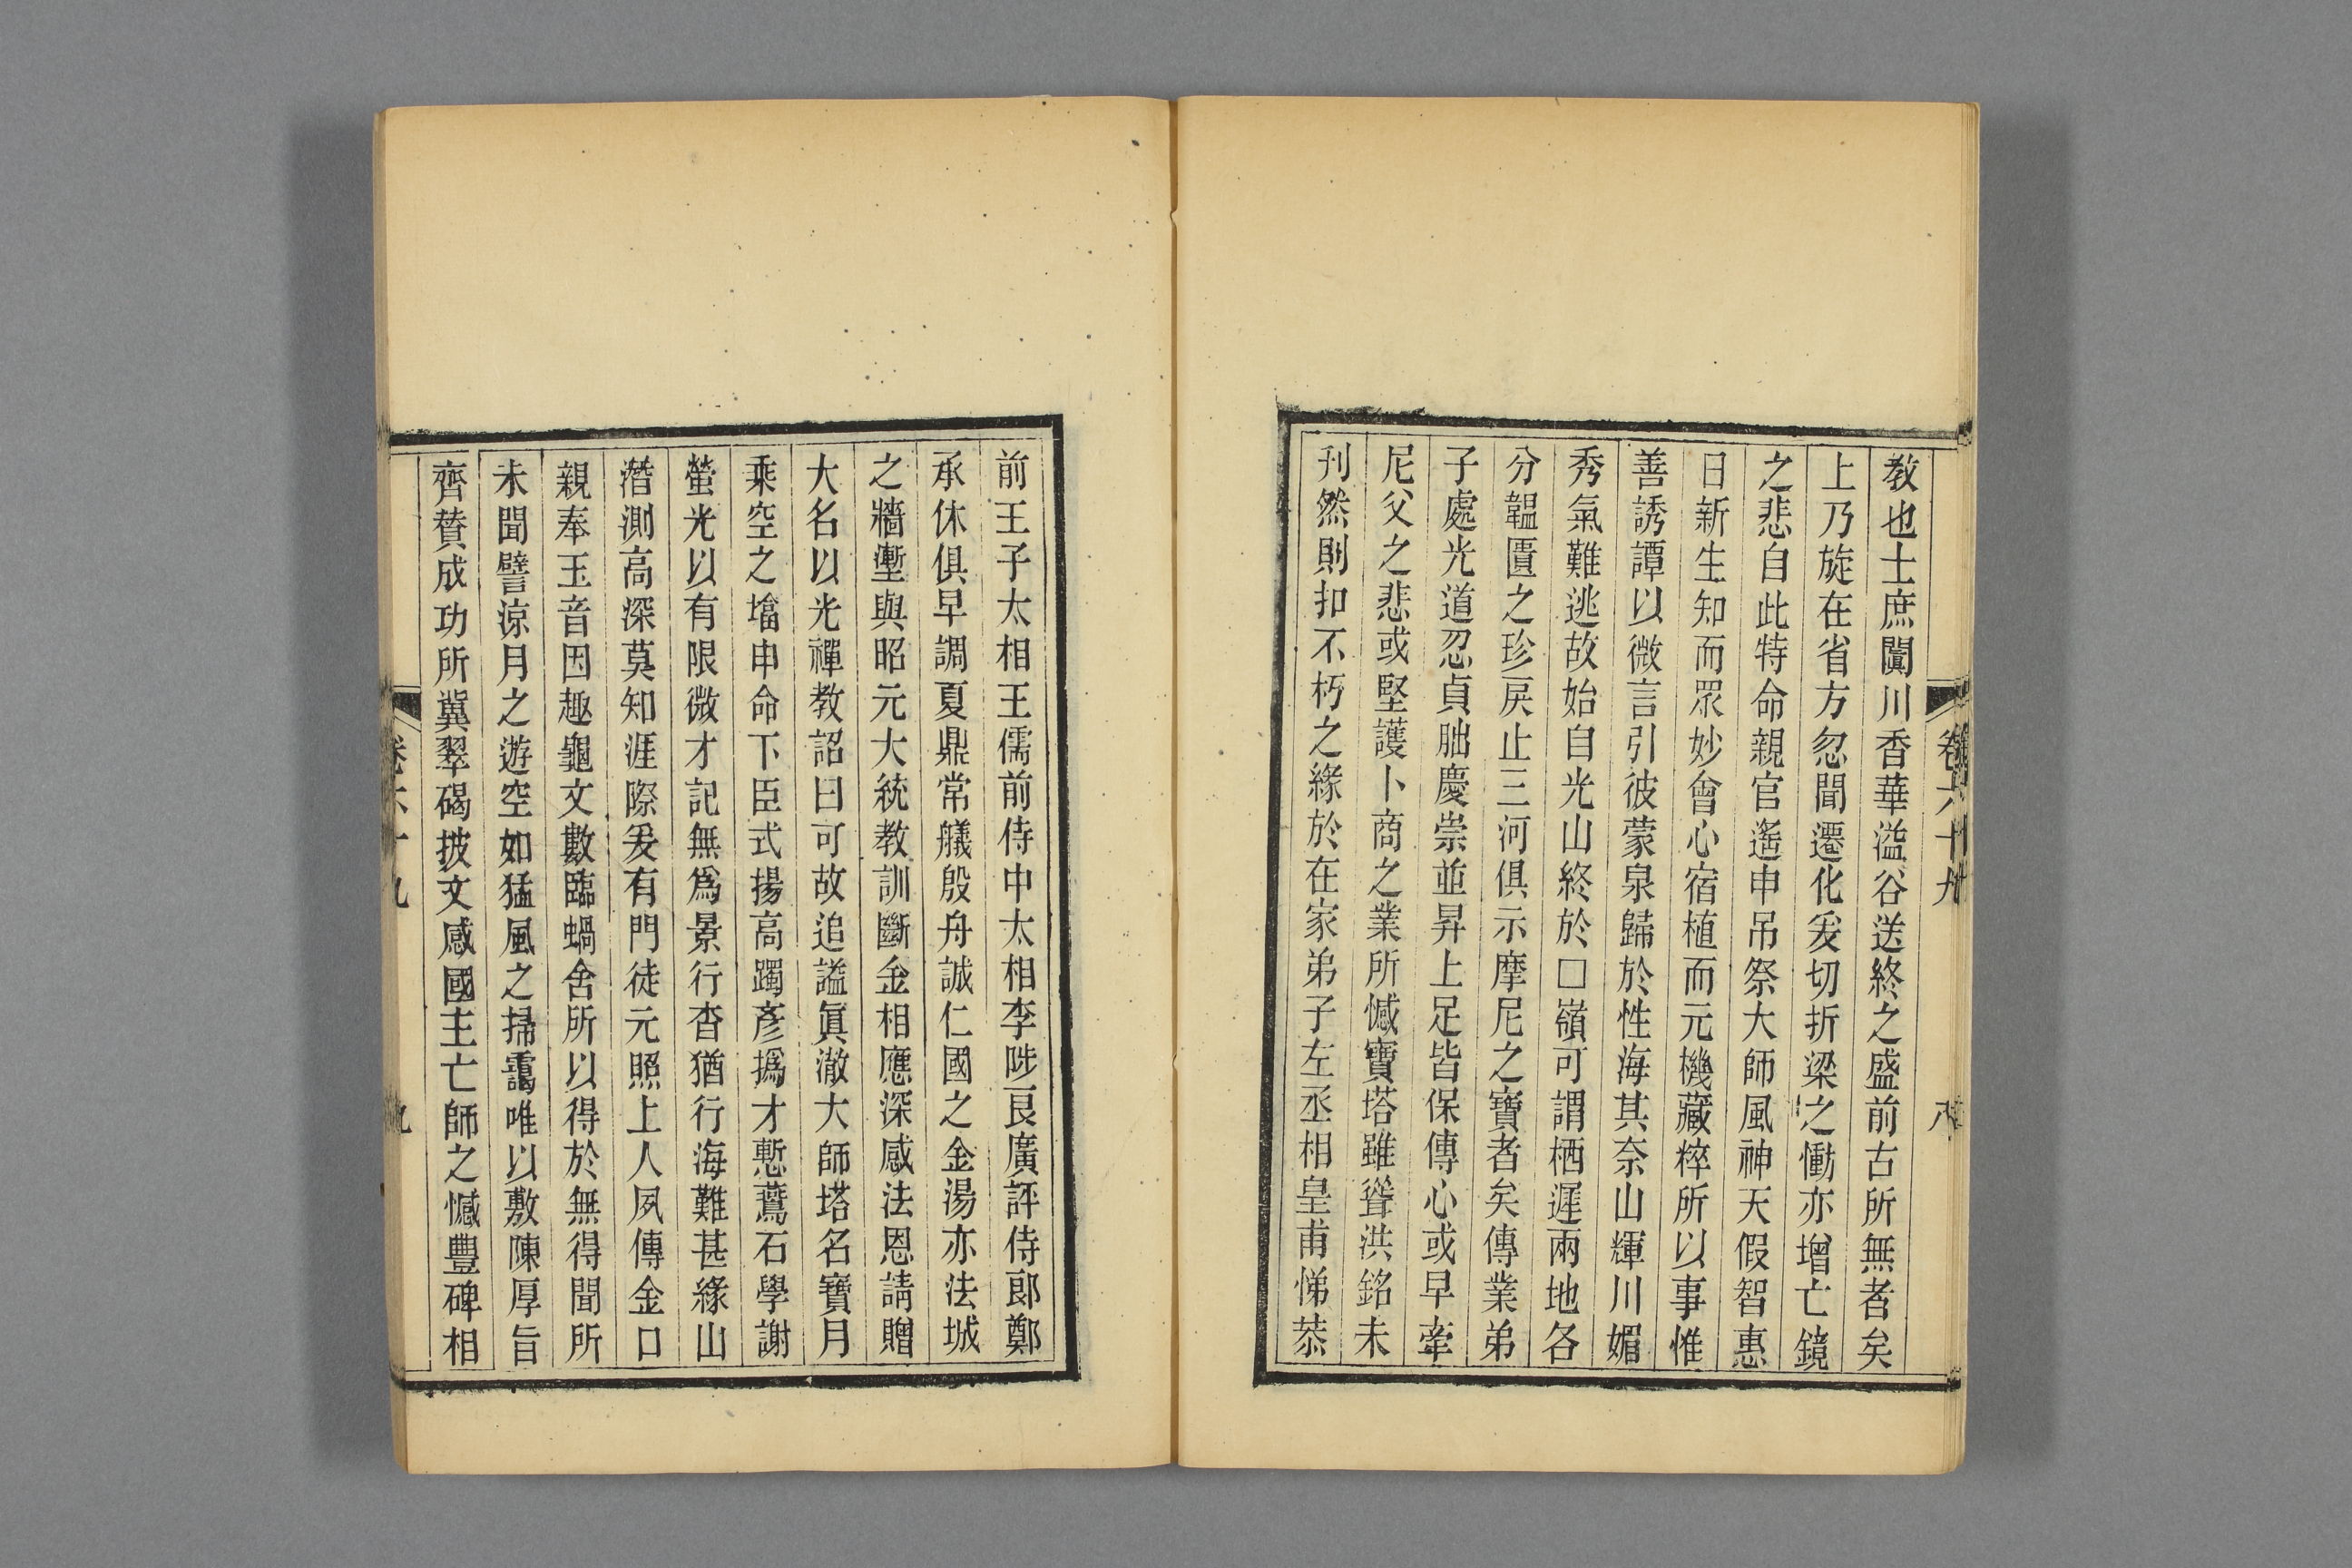 教也士庶闐川香華溢谷送終之盛前古所無者矣
上乃旋在省方忽聞遷化爰切折梁之慟亦增亡鏡
之悲自此特命親官遙申吊祭大師風神天假智惠
日新生知而眾妙會心宿植而元機藏粹所以事惟
善誘譚以微言引彼蒙泉歸於性海其奈山輝川媚
秀氣難逃故始自光山終於□嶺可謂栖遲兩地各
分韞匱之珍戾止三河俱示摩尼之寶者矣傳業弟
子處光道忍貞朏慶崇並昇上足皆保傳心或早牽
尼父之悲或堅護卜商之業所憾寶塔雖聳洪銘未
刋然則扣不朽之緣於在家弟子左丞相皇甫悌恭
卷六十九
八
前王子太相王儒前侍中太相李陟良廣評侍郎鄭
承休俱早調夏鼎常艤殷舟誠仁國之金湯亦法城
之牆壍與昭元大統教訓斷金相應深感法恩請贈
大名以光禪教詔曰可故追謚眞澈大師塔名寶月
乘空之墖申命下臣式揚高躅彥撝才慙薦石學謝
螢光以有限微才記無爲景行杳猶行海難甚緣山
潛測高深莫知涯際爰有門徒元照上人夙傳金口
親奉玉音因趣龜文數臨蝸舍所以得於無得聞所
未聞譬涼月之遊空如猛風之掃靄唯以敷陳厚旨
齊賛成功所冀翠碣披文感國主亡師之憾豐碑相
卷六十九
九